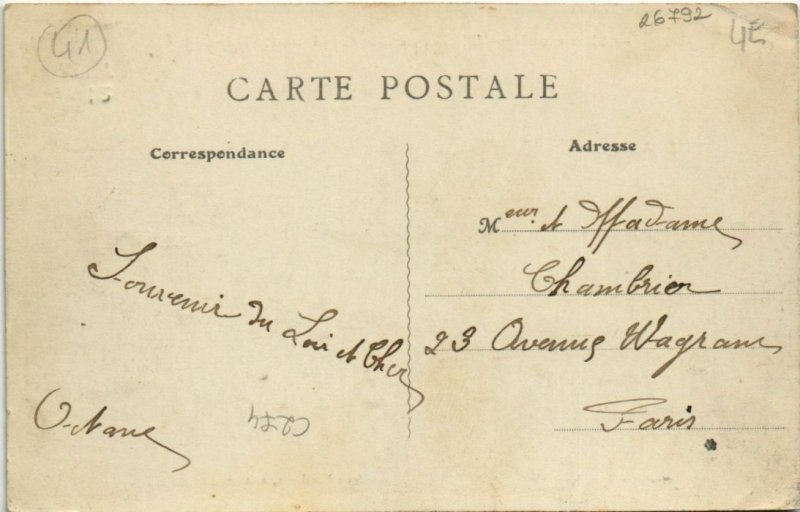 41
26792
4E
CARTE POSTALE
Correspondance
Adresse
Meur et Madame
Chambrier
23 Avenue Wagram
Paris
Souvenir du Loir et Cher
Octave
C274